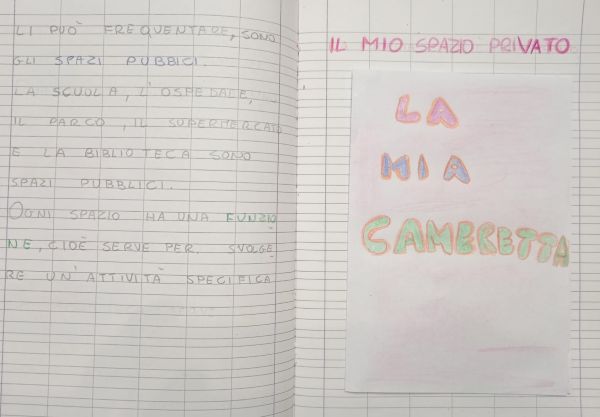 LI PUÒ FREQUENTARE, SONO
GLI SPAZI PUBBICI.
LA SCUOLA, L'OSPEDALE,
IL PARCO, IL SUPERMERCATO
E LA BIBLIOTECA SONO
SPAZI PUBBLICI.
OGNI SPAZIO HA UNA FUNZIO
NE, CIOÈ SERVE PER SVOLGE
RE UN'ATTIVITÀ SPECIFICA
IL MIO SPAZIO PRIVATO
LA
MIA
CAMERETTA